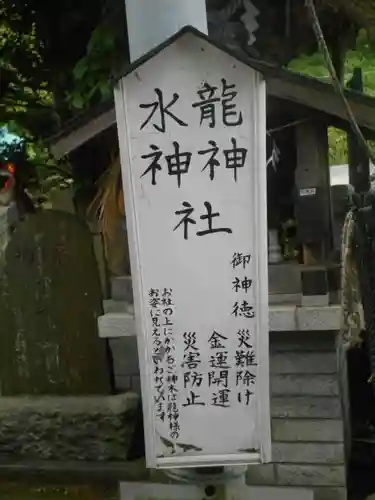 龍神
水神
社
御神徳
災難除け
金運開運
災害防止
お社の上にかかるご神木は龍神様の
お姿に見えると言われています